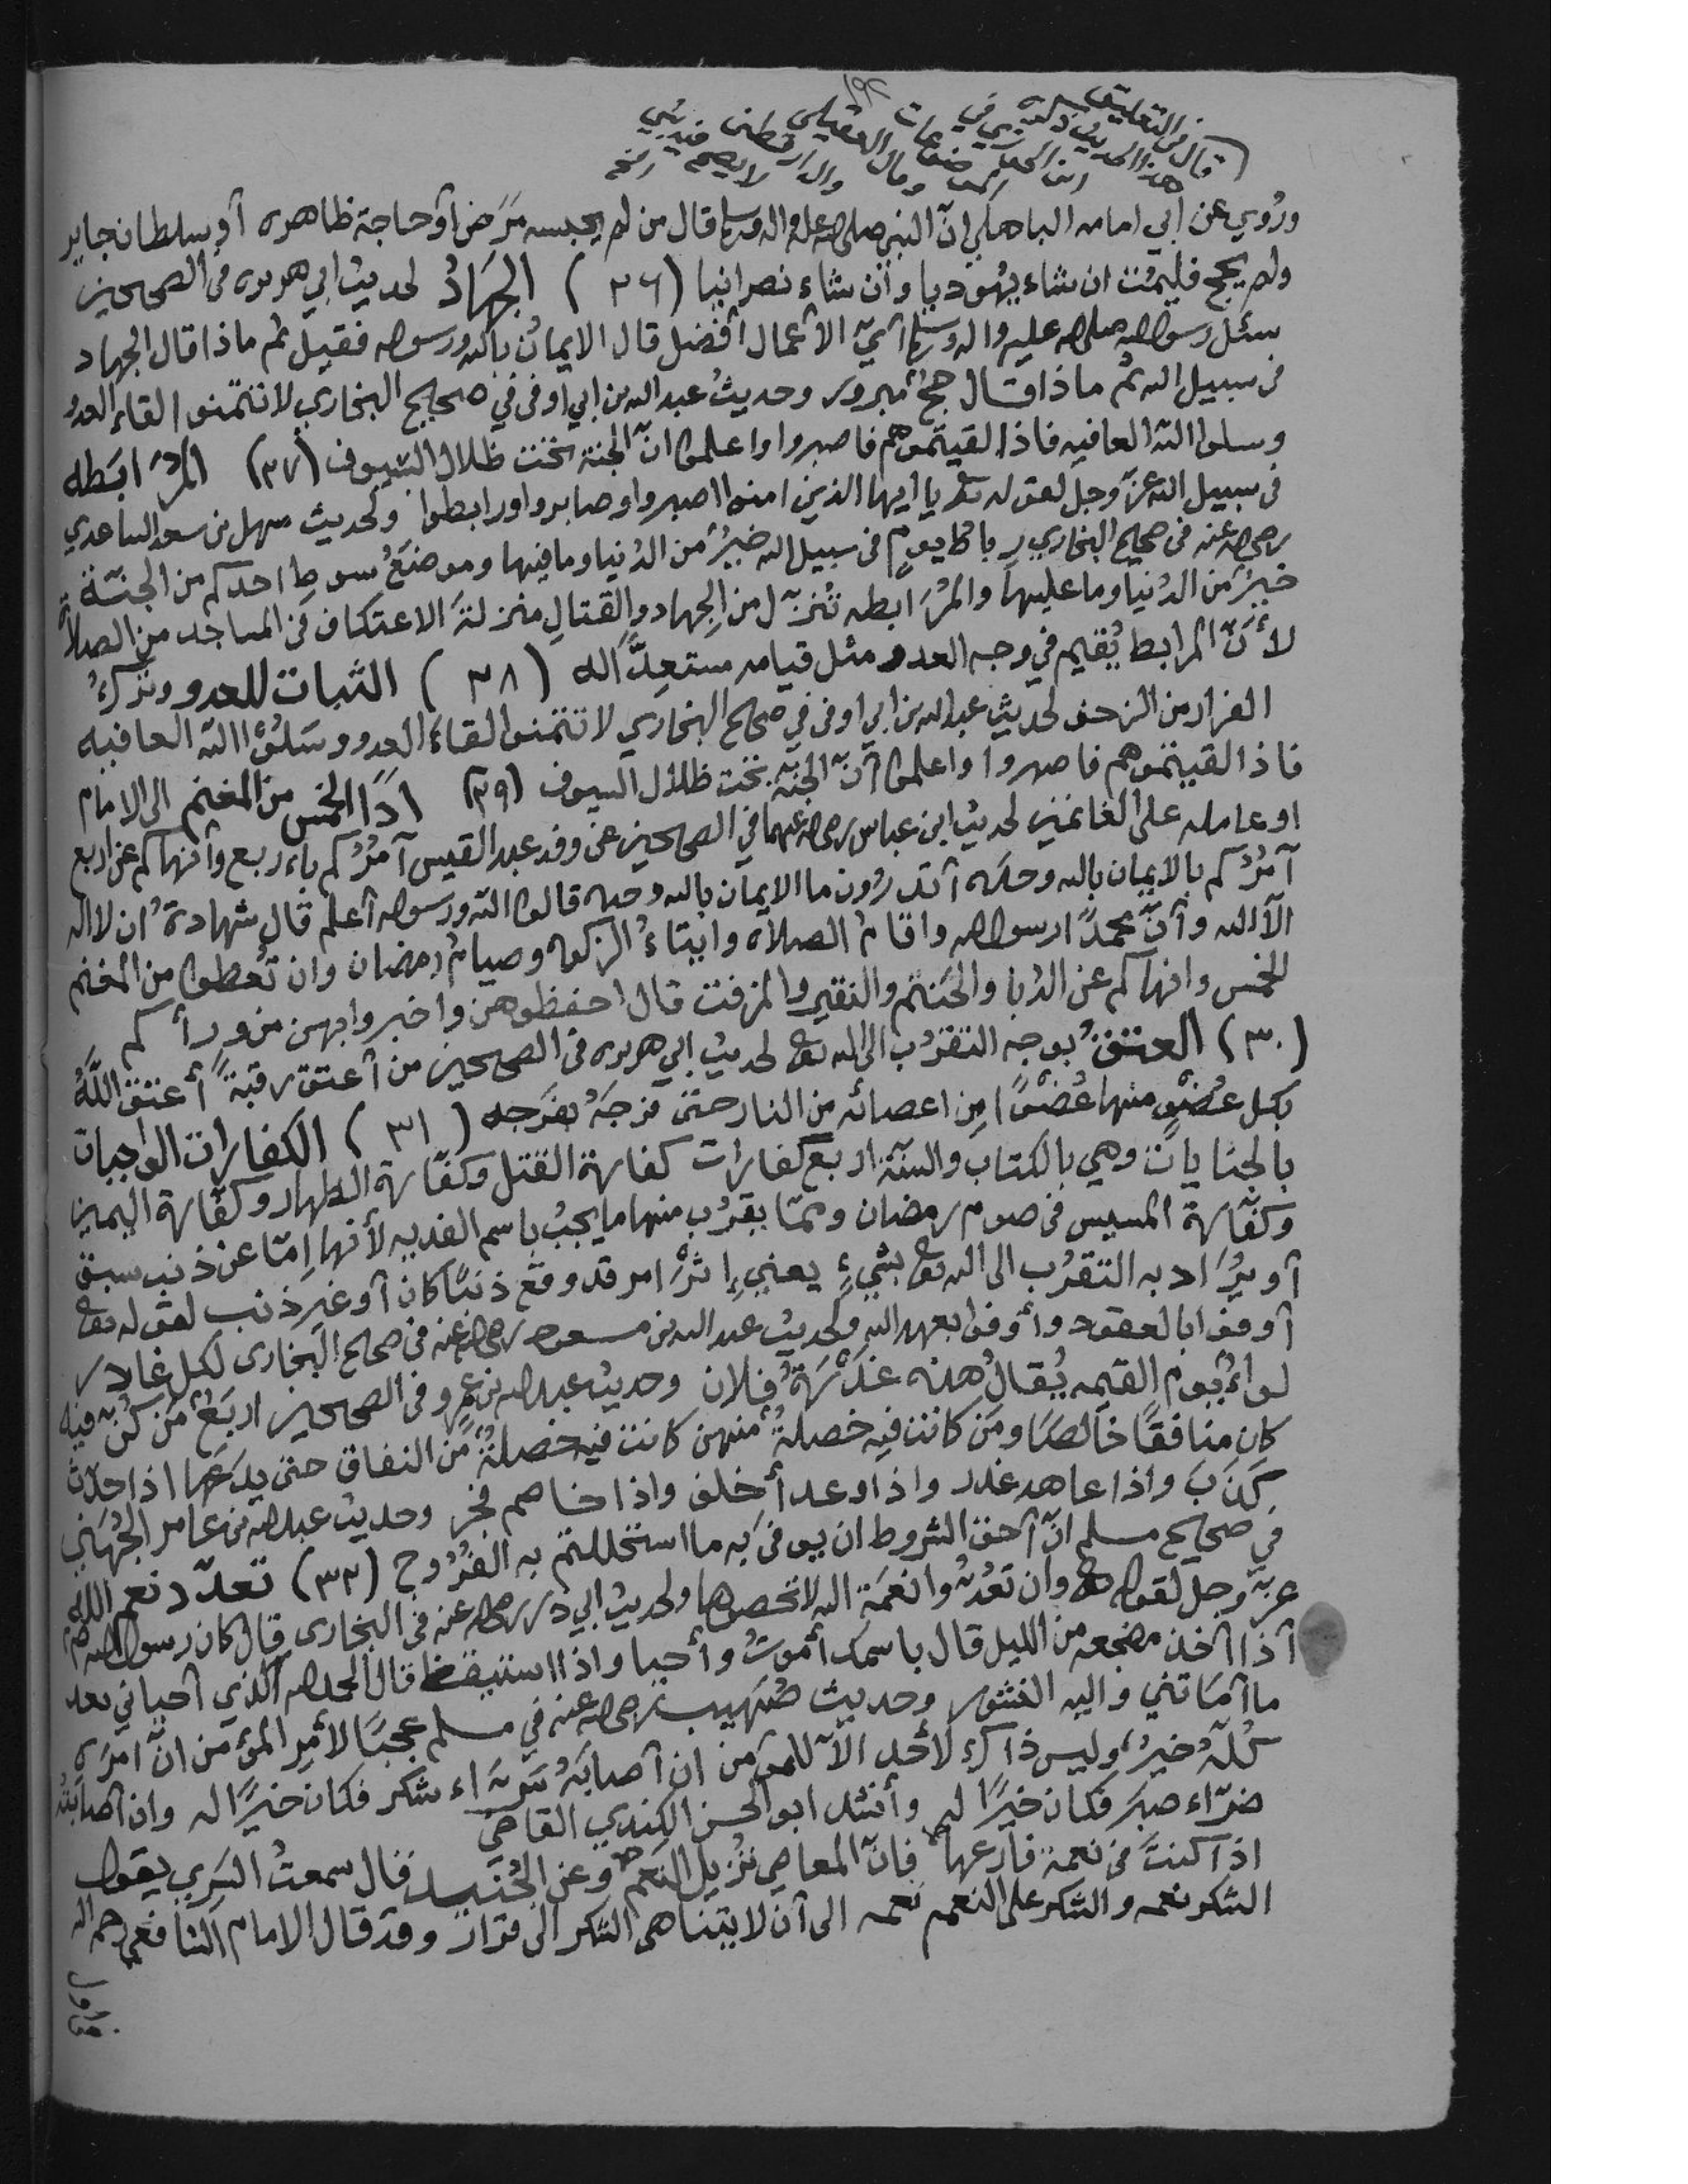 ١٩٢
قال في التعليق
هذا الحديث ذكره
وقال العقيلي
والدارقطني
لا يصح
ورُوي عن أبي امامه الباهلي انّ النبي صلى الله عليه واله وسلم قال من لم يحبسه مَرَض أو حاجة ظاهره أو سلطان جاير
ولم يحج فليمُت ان شاء يهُوديا وأن شاء نصرانيا (٢٦) الجهَادُ لحديث ابي هريره في الصحيحين
سئل رسول الله صلى الله عليه واله وسلم أيّ الأعمال أفضل قال الايمانُ بالله ورسوله فقيل ثم ماذا قال الجهاد
في سبيل الله ثم ماذا قال حجٌ مبرور وحديثُ عبد الله بن ابي أوفى في صحيح البخاري لا تتمنوا لقاء العدو
وسلوا الله العافيه فاذا لقيتموهم فاصبروا واعلموا انّ الجنة تحت ظلال السيوف (٢٧) المُرابَطه
في سبيل الله عزّ وجل لقوله تعالى يا أيها الذين امنوا اصبروا وصابروا ورابطوا ولحديث سهل بن سعد الساعدي
رضي الله عنه في صحيح البخاري رباط يومٍ في سبيل الله خيرٌ من الدُنيا وما فيها وموضعُ سوطِ احدكم من الجنّة
خيرٌ من الدُنيا وما عليها والمُرَابطه تُنزّل من الجهاد والقتالِ منزلةَ الاعتكاف في المساجد من الصلاة
لأنّ المرابط يُقيم في وجه العدو مثل قيامه مستعِدًّا له (٢٨) الثبات للعدو وتركُ
الفرار من الزحف لحديث عبد الله بن ابي اوفى في صحيح البخاري لا تتمنوا لقاءَ العدو وسَلُوا الله العافيه
فاذا لقيتموهم فاصبروا واعلموا أنّ الجنّة تحت ظلال السيوف (٢٩) ادَاالخمس من المغنم الى الامام
او عامله على الغانمين لحديث ابن عباس رضي الله عنهما في الصحيحين عن وفد عبد القيس آمرُكم باءربع وأنهاكم عن اربع
آمرُكم بالايمان بالله وحده أتدرُون ما الايمان بالله وحده قالوا الله ورسوله أعلم قال شهادةُ ان لا اله
الا الله وأنّ محمدًا رسول الله واقامُ الصلاة وايتاءُ الزكوة وصيامُ رمضان وان تُعطوا من المغنم
الخمس وانهاكم عن الدُبا والحَنتم والنقير والمزفت قال احفظوهن واخبروا بهن من ورأكم
(٣٠) العتقُ بوجه التقرُب الى الله تعالى لحديث ابي هريره في الصحيحين من أعتق رقبةً أعتق اللهُ
بكل عُضوٍ منها عُضوًا من اعضائه من النار حتى فرجَهُ بفرَجه (٣١) الكفارات الواجبات
بالجنايات وهي بالكتاب والسنّة اربع كفارات كفارة القتل وكفّارة الظهار وكفّارة اليمين
وكفّارة المسيس في صوم رمضان وممّا يقرُب منها ما يجبُ باسم الفديه لأنها امّا عن ذنب سبق
أو يُرَاد به التقرُب الى الله تعالى بشيءٍ يعني إثرَ امر قد وقع ذنبًا كان أو غير ذنب لقوله تعالى
أوفوا بالعقود وأوفوا بعهد الله ولحديث عبد الله بن مسعود رضي الله عنه في صحيح البخارى لكل غادر
لواءٌ يوم القيمه يُقالُ هذه غَدْرَةُ فلان وحديث عبد الله بن عمرو في الصحيحين اربَعٌ مَن كُنّ فيه
كان منافقًا خالصًا ومَن كانت فيه خصلةٌ منهن كانت فيه خصلةٌ من النفاق حتى يدَعَها اذا حدّث
كذَبَ واذا عاهد غدر واذا وعد أخلف واذا خاصم فجر وحديث عبد الله بن عامر الجُهَني
في صحيح مسلم انّ أحق الشروط ان يوفى به ما استحللتم به الفرُوج (٣٢) تعدّد نعم الله
عزّ وجل لقوله تعالى وان تعُدّوا نعمَة الله لا تحصوها ولحديث ابي ذر رضي الله عنه في البخارى قال كان رسول الله صلم
اذا اخذ مضجعه من الليل قال باسمك أموتُ وأحيا واذا استيقظ قال الحمد لله الذي أحياني بعد
ما أمَاتني واليه النشور وحديث صُهَيب رضي الله عنه في مسلم عجبًا لأمر المؤمن انّ امرَه
كُلّهُ خيرٌ وليس ذاكَ لأحد الّا للمؤمن ان أصابَهُ سَرّاء شكر فكان خيرًا له وان أصابَتهُ
ضرّاء صبَر فكان خيرًا له وأنشد ابو الحسن الكِندي القاضي
اذا كنتَ في نعمة فارعها فانّ المعاصي تُزيل النَعَم وعن الجُنَيد قال سمعتُ السَري يقول
الشكر نعمه والشكر على النعمه نعمه الى أن لا يتناهى الشكر الى قرار وقد قال الامام الشافعي رحمه الله